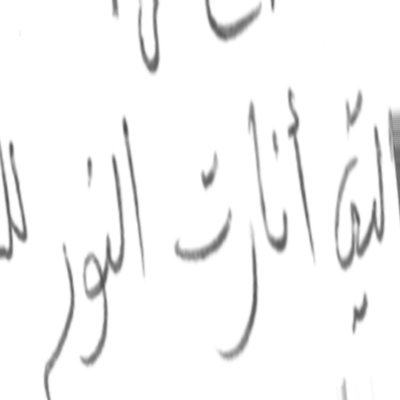 التي أنارت النور